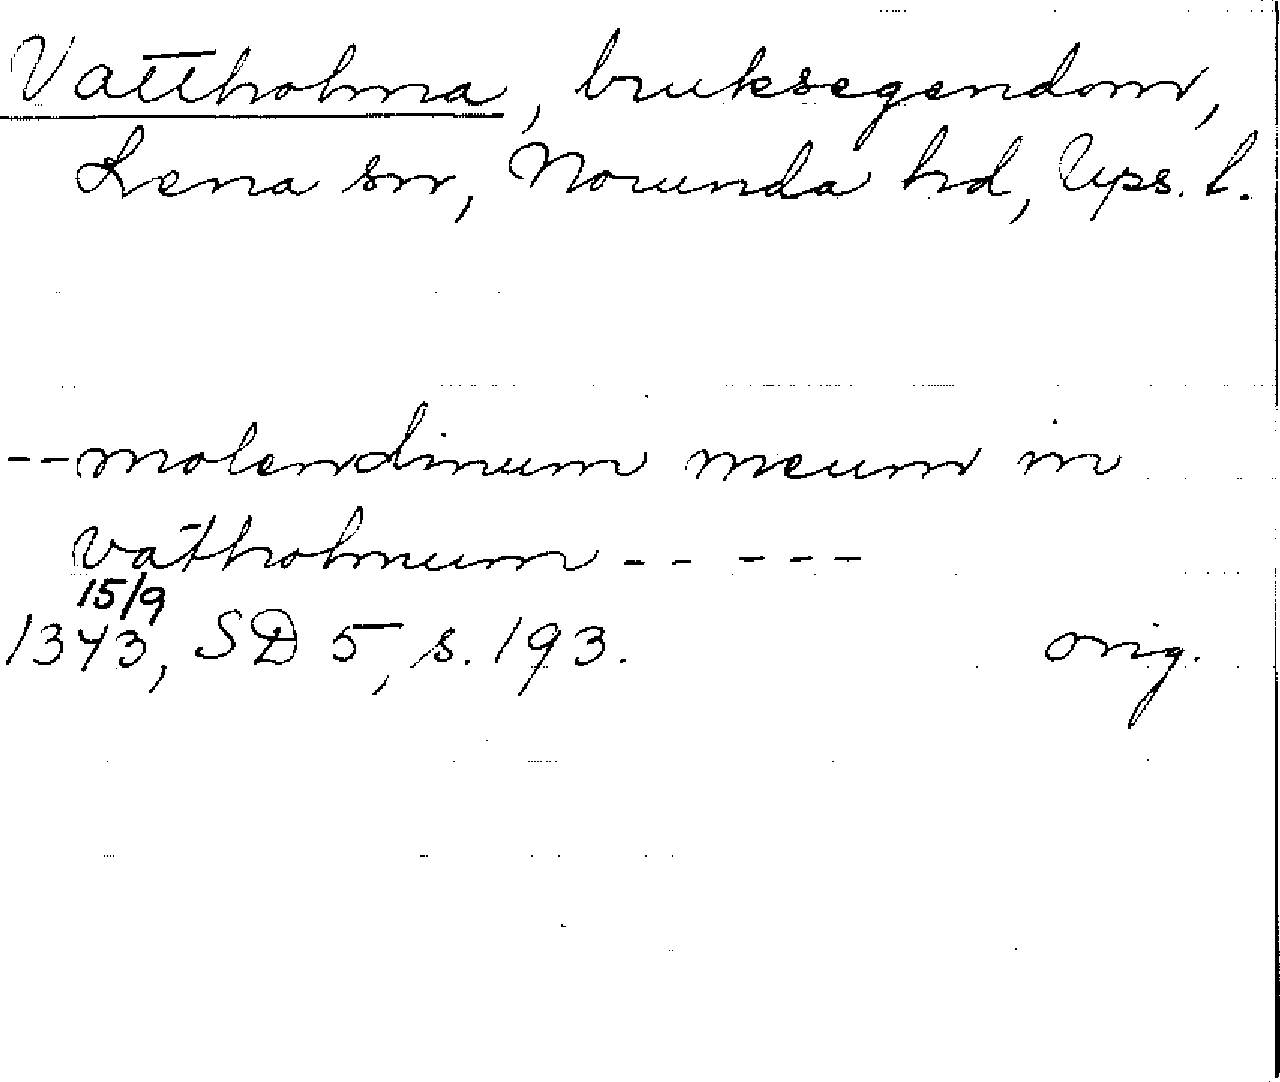 Vattholma, bruksegendom,
Lena sn, Norunda hd, Ups. l.
--molendinum meum in
vatholmum -- ---
15/9
1343, SD 5, s. 193. orig.